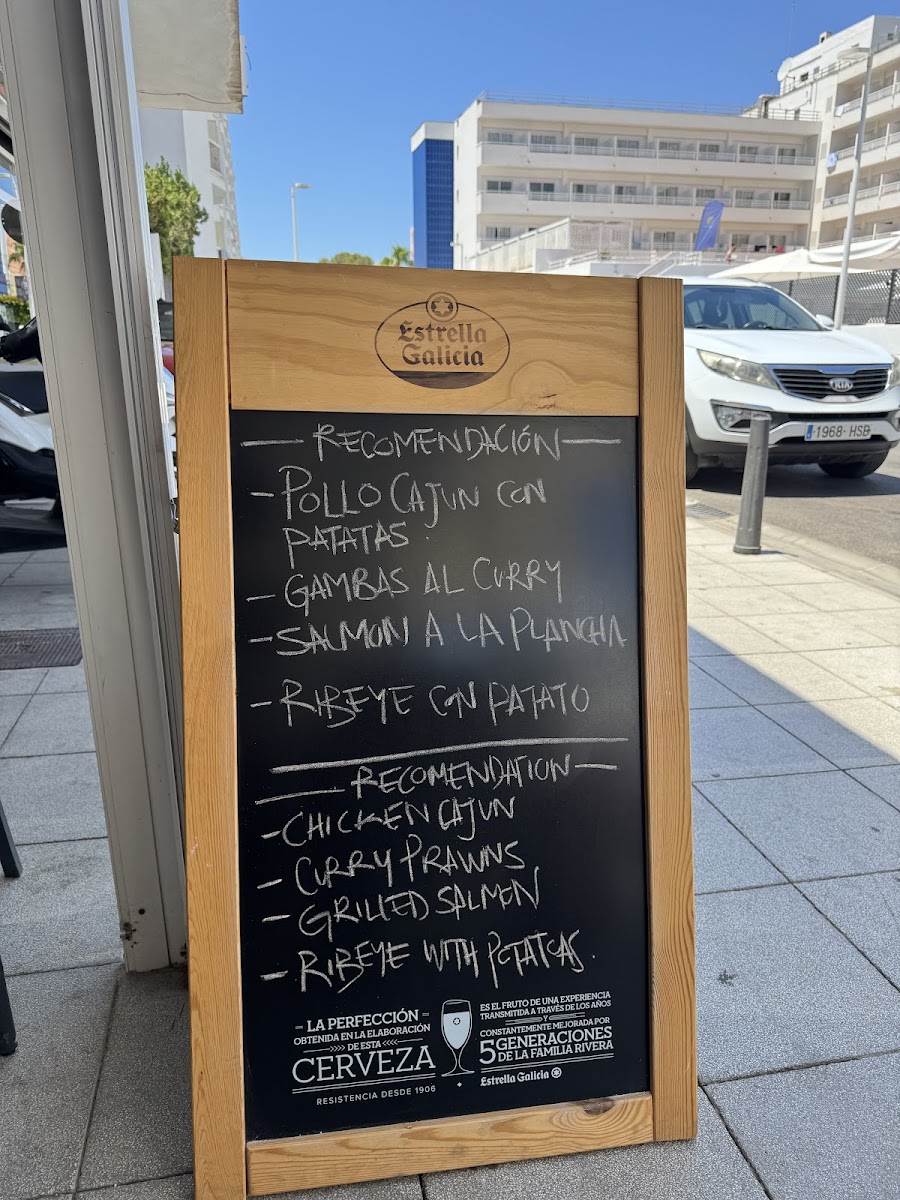 Estrella
Galicia
RECOMENDACIÓN
- POLLO CAJUN CON
PATATAS.
- GAMBAS AL CURRY
- SALMON A LA PLANCHA
- RIBEYE CON PATATO
RECOMENDATION
- CHICKEN CAJUN
- CURRY PRAWNS
- GRILLED SALMON
- RIBEYE WITH POTATOAS.
- LA PERFECCIÓN -
OBTENIDA EN LA ELABORACIÓN
DE ESTA
CERVEZA
RESISTENCIA DESDE 1906
ES EL FRUTO DE UNA EXPERIENCIA
TRANSMITIDA A TRAVÉS DE LOS AÑOS
Y
CONSTANTEMENTE MEJORADA POR
5 GENERACIONES
DE LA FAMILIA RIVERA
Estrella Galicia
KIA
1968 HSB